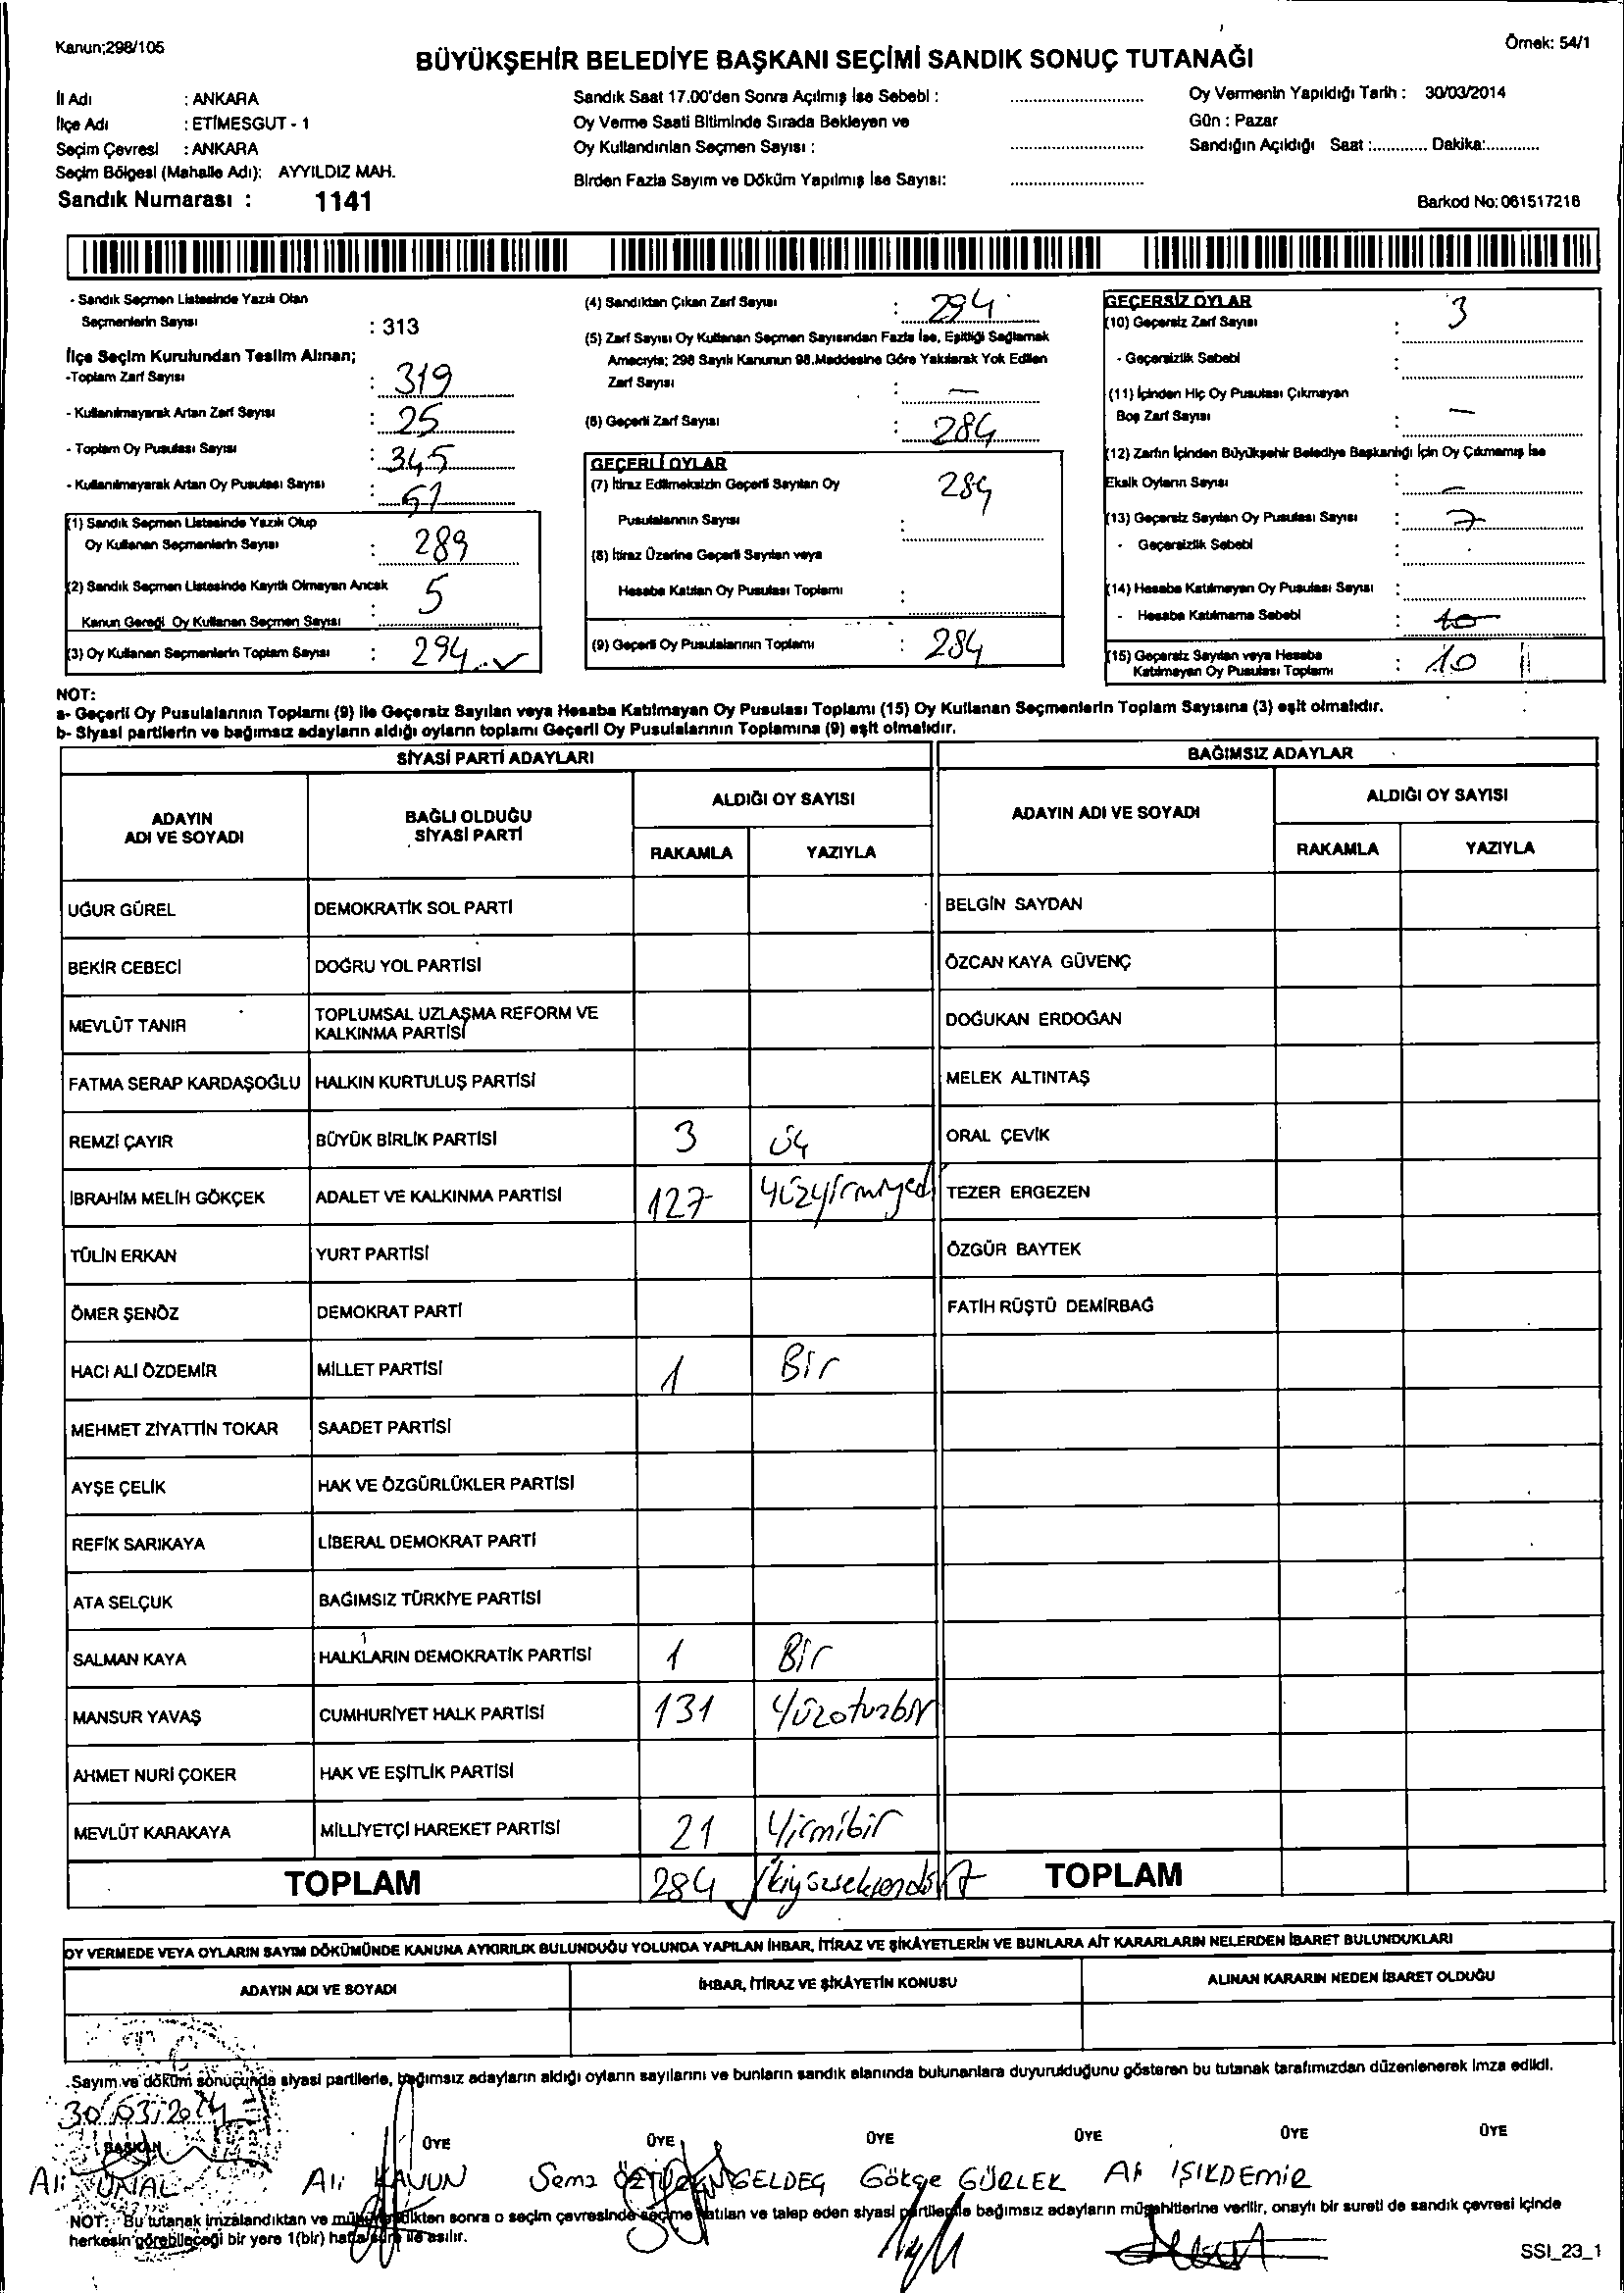 Kanun;298/105
Örnek: 54/1
BÜYÜKŞEHİR BELEDİYE BAŞKANI SEÇİMİ SANDIK SONUÇ TUTANAĞI
İl Adı : ANKARA
İlçe Adı : ETİMESGUT - 1
Seçim Çevresi : ANKARA
Seçim Bölgesi (Mahalle Adı): AYYILDIZ MAH.
Sandık Numarası : 1141
Sandık Saat 17.00'den Sonra Açılmış İse Sebebi : ............
Oy Verme Saati Bitiminde Sırada Bekleyen ve
Oy Kullandırılan Seçmen Sayısı : ............
Birden Fazla Sayım ve Döküm Yapılmış İse Sayısı: ............
Oy Vermenin Yapıldığı Tarih : 30/03/2014
Gün : Pazar
Sandığın Açıldığı Saat :............ Dakika:............
Barkod No: 061517216
- Sandık Seçmen Listesinde Yazılı Olan
Seçmenlerin Sayısı : 313
İlçe Seçim Kurulundan Teslim Alınan;
-Toplam Zarf Sayısı : 319
- Kullanılmayarak Artan Zarf Sayısı : 25
- Toplam Oy Pusulası Sayısı : 345
- Kullanılmayarak Artan Oy Pusulası Sayısı : 51
(1) Sandık Seçmen Listesinde Yazılı Olup
Oy Kullanan Seçmenlerin Sayısı : 289
(2) Sandık Seçmen Listesinde Kayıtlı Olmayan Ancak
Kanun Gereği Oy Kullanan Seçmen Sayısı : 5
(3) Oy Kullanan Seçmenlerin Toplam Sayısı : 294
(4) Sandıktan Çıkan Zarf Sayısı : 294
(5) Zarf Sayısı Oy Kullanan Seçmen Sayısından Fazla İse, Eşitliği Sağlamak
Amacıyla; 298 Sayılı Kanunun 98.Maddesine Göre Yakılarak Yok Edilen
Zarf Sayısı : -
(6) Geçerli Zarf Sayısı : 284
GEÇERLİ OYLAR
(7) İtiraz Edilmeksizin Geçerli Sayılan Oy
Pusulalarının Sayısı : 284
(8) İtiraz Üzerine Geçerli Sayılan veya
Hesaba Katılan Oy Pusulası Toplamı :
(9) Geçerli Oy Pusulalarının Toplamı : 284
GEÇERSİZ OYLAR
(10) Geçersiz Zarf Sayısı : 3
- Geçersizlik Sebebi :
(11) İçinden Hiç Oy Pusulası Çıkmayan
Boş Zarf Sayısı : -
(12) Zarfın İçinden Büyükşehir Belediye Başkanlığı İçin Oy Çıkmamış İse
Eksik Oyların Sayısı : -
(13) Geçersiz Sayılan Oy Pusulası Sayısı : 7
- Geçersizlik Sebebi :
(14) Hesaba Katılmayan Oy Pusulası Sayısı :
- Hesaba Katılmama Sebebi : 10
(15) Geçersiz Sayılan veya Hesaba
Katılmayan Oy Pusulası Toplamı : 10
NOT:
a- Geçerli Oy Pusulalarının Toplamı (9) ile Geçersiz Sayılan veya Hesaba Katılmayan Oy Pusulası Toplamı (15) Oy Kullanan Seçmenlerin Toplam Sayısına (3) eşit olmalıdır.
b- Siyasi partilerin ve bağımsız adayların aldığı oyların toplamı Geçerli Oy Pusulalarının Toplamına (9) eşit olmalıdır.
SİYASİ PARTİ ADAYLARI
BAĞIMSIZ ADAYLAR
ADAYIN ADI VE SOYADI
BAĞLI OLDUĞU SİYASİ PARTİ
ALDIĞI OY SAYISI
RAKAMLA YAZIYLA
ADAYIN ADI VE SOYADI
ALDIĞI OY SAYISI
RAKAMLA YAZIYLA
UĞUR GÜREL DEMOKRATİK SOL PARTİ BELGİN SAYDAN
BEKİR CEBECİ DOĞRU YOL PARTİSİ ÖZCAN KAYA GÜVENÇ
MEVLÜT TANIR TOPLUMSAL UZLAŞMA REFORM VE KALKINMA PARTİSİ DOĞUKAN ERDOĞAN
FATMA SERAP KARDAŞOĞLU HALKIN KURTULUŞ PARTİSİ MELEK ALTINTAŞ
REMZİ ÇAYIR BÜYÜK BİRLİK PARTİSİ 3 üç ORAL ÇEVİK
İBRAHİM MELİH GÖKÇEK ADALET VE KALKINMA PARTİSİ 127 Yüzyirmiyedi TEZER ERGEZEN
TÜLİN ERKAN YURT PARTİSİ ÖZGÜR BAYTEK
ÖMER ŞENÖZ DEMOKRAT PARTİ FATİH RÜŞTÜ DEMİRBAĞ
HACI ALİ ÖZDEMİR MİLLET PARTİSİ 1 Bir
MEHMET ZİYATTİN TOKAR SAADET PARTİSİ
AYŞE ÇELİK HAK VE ÖZGÜRLÜKLER PARTİSİ
REFİK SARIKAYA LİBERAL DEMOKRAT PARTİ
ATA SELÇUK BAĞIMSIZ TÜRKİYE PARTİSİ
SALMAN KAYA HALKLARIN DEMOKRATİK PARTİSİ 1 Bir
MANSUR YAVAŞ CUMHURİYET HALK PARTİSİ 131 Yüzotuzbir
AHMET NURİ ÇOKER HAK VE EŞİTLİK PARTİSİ
MEVLÜT KARAKAYA MİLLİYETÇİ HAREKET PARTİSİ 21 Yirmibir
TOPLAM 284 İkiyüzseksendört TOPLAM
OY VERMEDE VEYA OYLARIN SAYIM DÖKÜMÜNDE KANUNA AYKIRILIK BULUNDUĞU YOLUNDA YAPILAN İHBAR, İTİRAZ VE ŞİKÂYETLERİN VE BUNLARA AİT KARARLARIN NELERDEN İBARET BULUNDUKLARI
ADAYIN ADI VE SOYADI İHBAR, İTİRAZ VE ŞİKÂYETİN KONUSU ALINAN KARARIN NEDEN İBARET OLDUĞU
Sayım ve döküm sonucunda siyasi partilerle, bağımsız adayların aldığı oyların sayılarını ve bunların sandık alanında bulunanlara duyurulduğunu gösteren bu tutanak tarafımızdan düzenlenerek imza edildi.
30/03/2014
BAŞKAN ÜYE ÜYE ÜYE ÜYE ÜYE ÜYE
Ali ÜNAL Ali KAVUN Sema GELDEÇ Gökçe GÜRLEK Ali IŞIKDEMİR
NOT: Bu tutanak imzalandıktan ve mühürlendikten sonra o seçim çevresinde seçime katılan ve talep eden siyasi partilerle bağımsız adayların müşahitlerine verilir, onaylı bir sureti de sandık çevresi içinde
herkesin görebileceği bir yere 1(bir) hafta süre ile asılır.
SSI_23_1